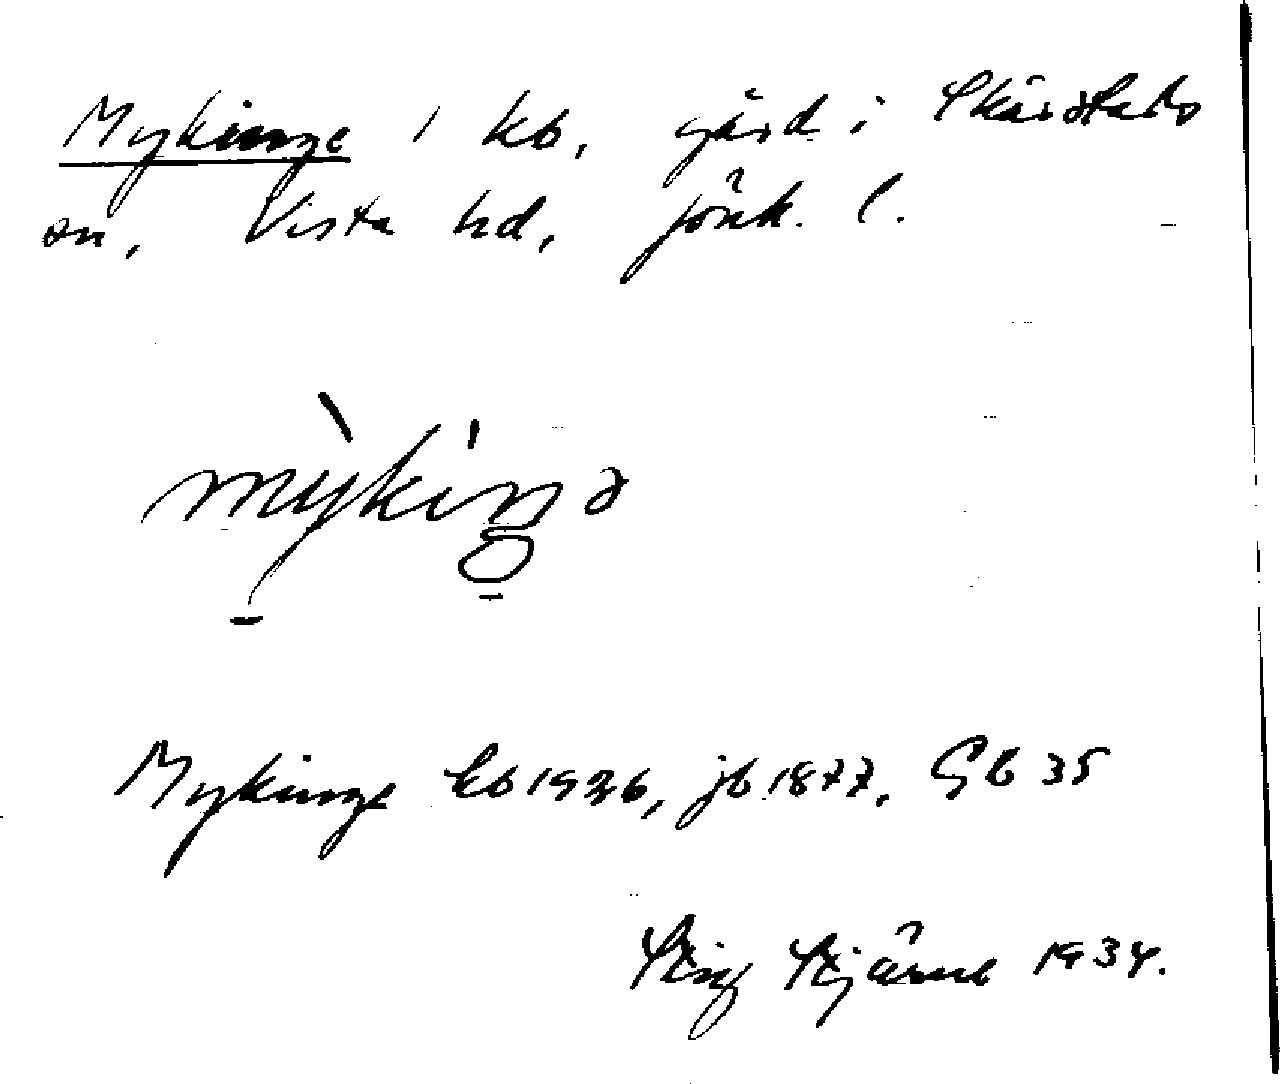 Mykinge 1 kb, gård i Skärstads
sn, Vista hd, Jönk. l.
mỳkiŋə
Mykinge kb 1926, jb 1877, GB 35
Stig Stjärne 1934.